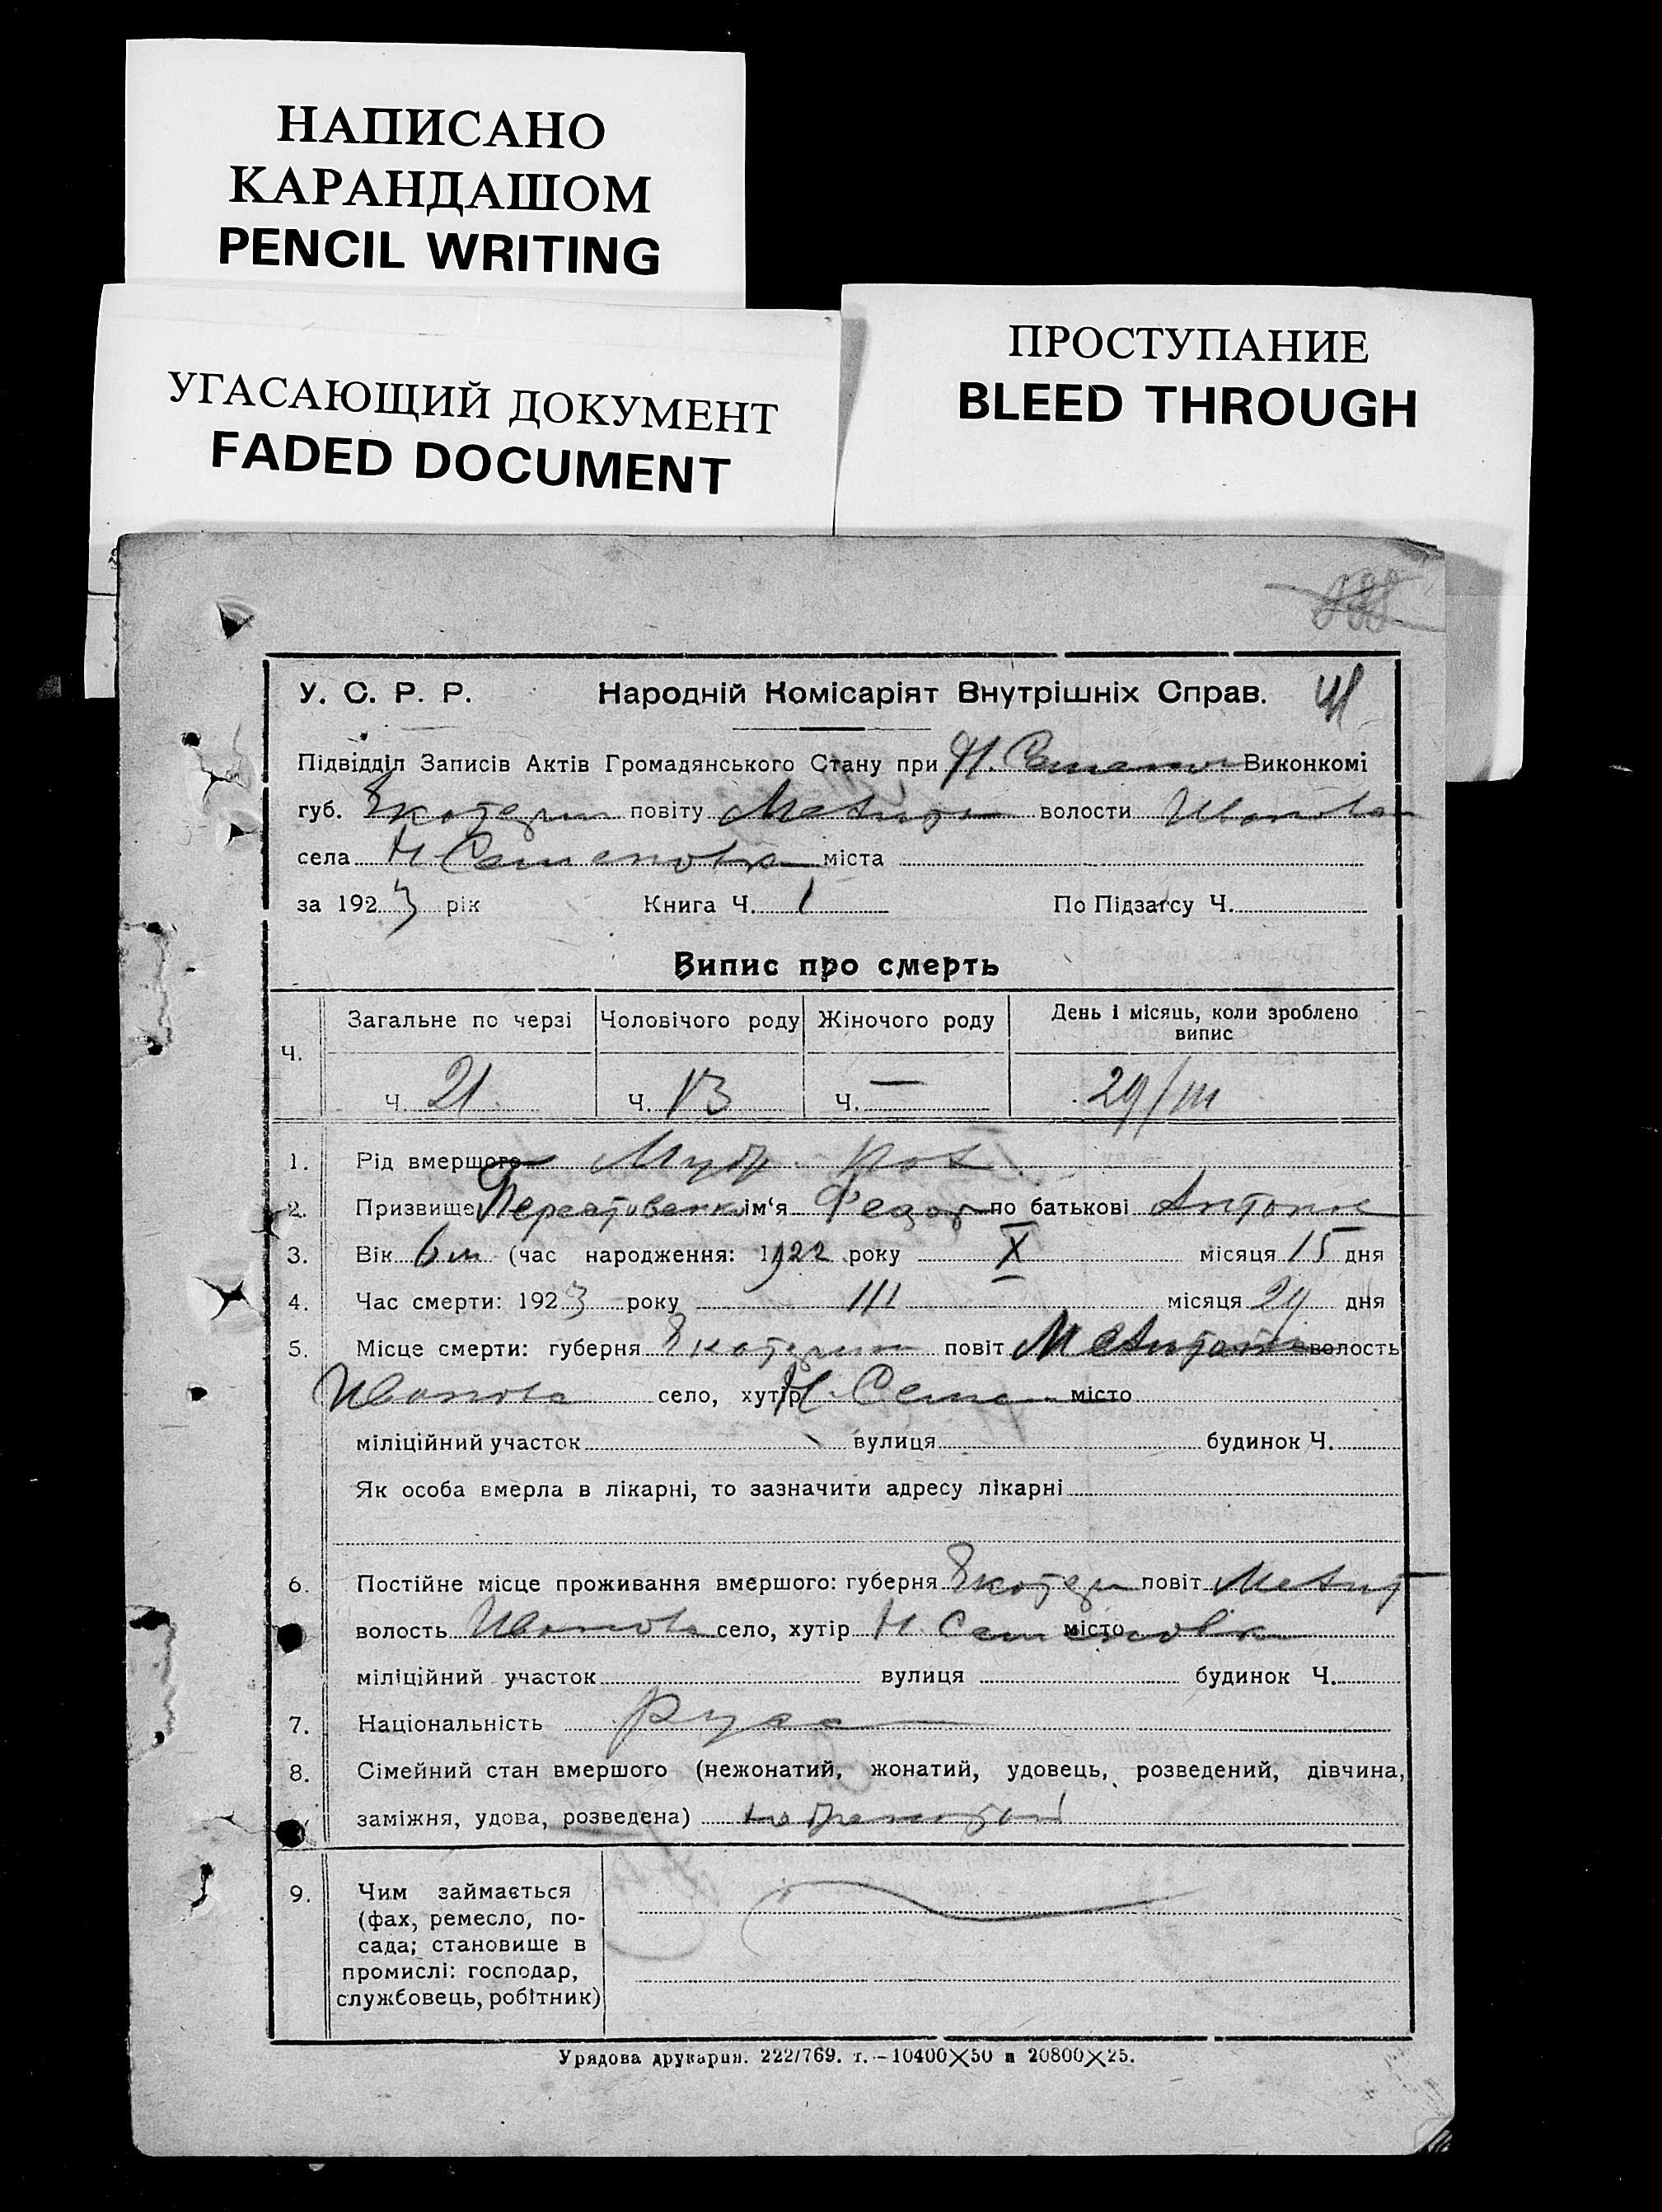 НАПИСАНО
КАРАНДАШОМ
PENCIL WRITING
УГАСАЮЩИЙ ДОКУМЕНТ
FADED DOCUMENT
ПРОСТУПАНИЕ
BLEED THROUGH
У. С. Р. Р. Народній Комісаріят Внутрішніх Справ. 41
Підвідділ Записів Актів Громадянського Стану при Виконкомі
губ. Екатерин повіту волости
села Н Семеновка міста
за 1923 рік Книга Ч. 1 По Підзагсу Ч.
Випис про смерть
Ч. Загальне по черзі Чоловічого роду Жіночого роду День і місяць, коли зроблено випис
Ч. 21 Ч. 13 Ч. — 29/III
1. Рід вмершого Муж. пол
2. Призвище ім‘я Федор по батькові Антонов
3. Вік 6 м (час народження: 1922 року X місяця 15 дня
4. Час смерти: 1923 року III місяця 29 дня
5. Місце смерти: губерня Екатерин повіт Мелитопол волость
Иванов село, хутір Н. Семе місто
міліційний участок вулиця будинок Ч.
Як особа вмерла в лікарні, то зазначити адресу лікарні
6. Постійне місце проживання вмершого: губерня Екатер повіт Мелит
волость Иванов село, хутір Н. Семеновка місто
міліційний участок вулиця будинок Ч.
7. Національність русс
8. Сімейний стан вмершого (нежонатий, жонатий, удовець, розведений, дівчина,
заміжня, удова, розведена)
9. Чим займається
(фах, ремесло, по-
сада; становище в
промислі: господар,
службовець, робітник)
Урядова друкарня. 222/769. т. – 10400×50 и 20800×25.